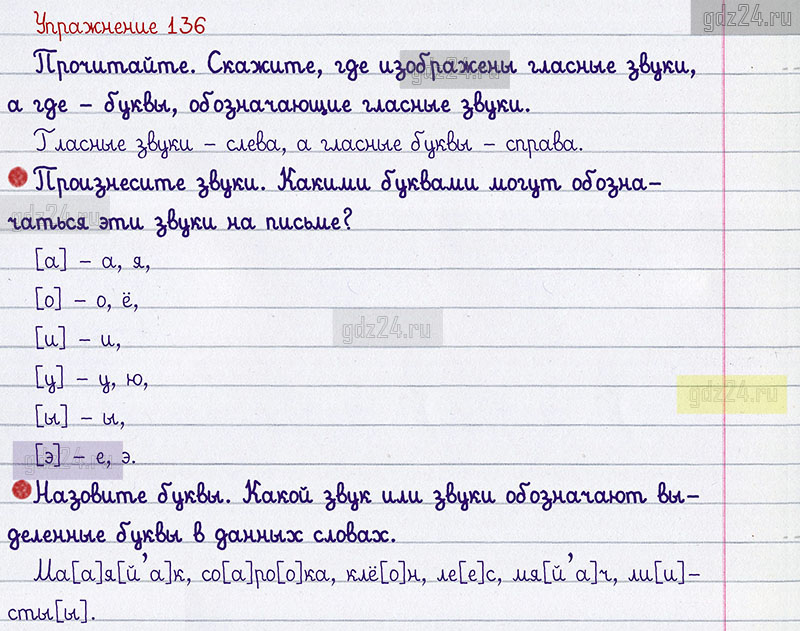 Упражнение 136
gdz24.ru
Прочитайте. Скажите, где изображены гласные звуки,
gdz24.ru
а где – буквы, обозначающие гласные звуки.
Гласные звуки – слева, а гласные буквы – справа.
Произнесите звуки. Какими буквами могут обозна–
gdz24.ru
чаться эти звуки на письме?
[а] – а, я,
[о] – о, ё,
[и] – и,
gdz24.ru
[у] – у, ю,
gdz24.ru
[ы] – ы,
[э] – е, э.
gdz24.ru
Назовите буквы. Какой звук или звуки обозначают вы–
деленные буквы в данных словах.
Ма[а]я[й’а]к, со[а]ро[о]ка, клё[о]н, ле[е]с, мя[й’а]ч, ли[и]–
сты[ы].